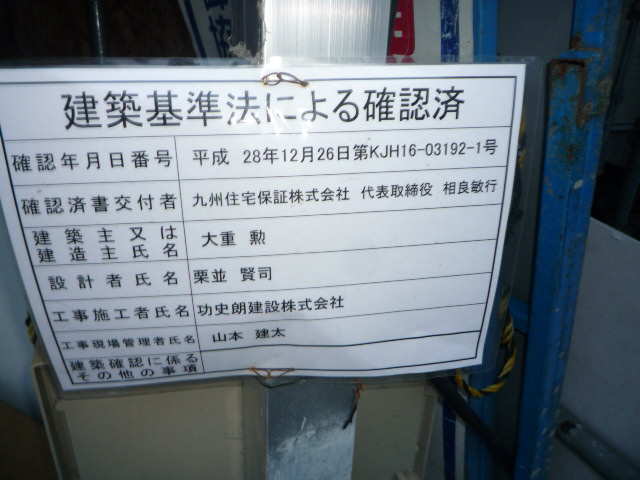 建築基準法による確認済
確認年月日番号 平成 28年12月26日第KJH16-03192-1号
確認済書交付者 九州住宅保証株式会社 代表取締役 相良敏行
建築主又は
建造主氏名 大重 勲
設計者氏名 栗並 賢司
工事施工者氏名 功史朗建設株式会社
工事現場管理者氏名 山本 建太
建築確認に係る
その他の事項